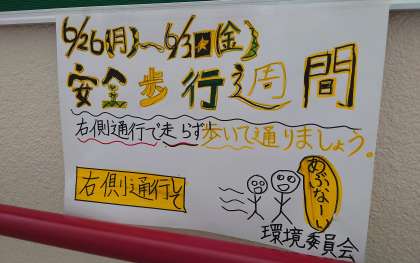 6/26(月)～6/30(金)
安全歩行週間
右側通行で走らず歩いて通りましょう。
右側通行して
あぶなーい
環境委員会